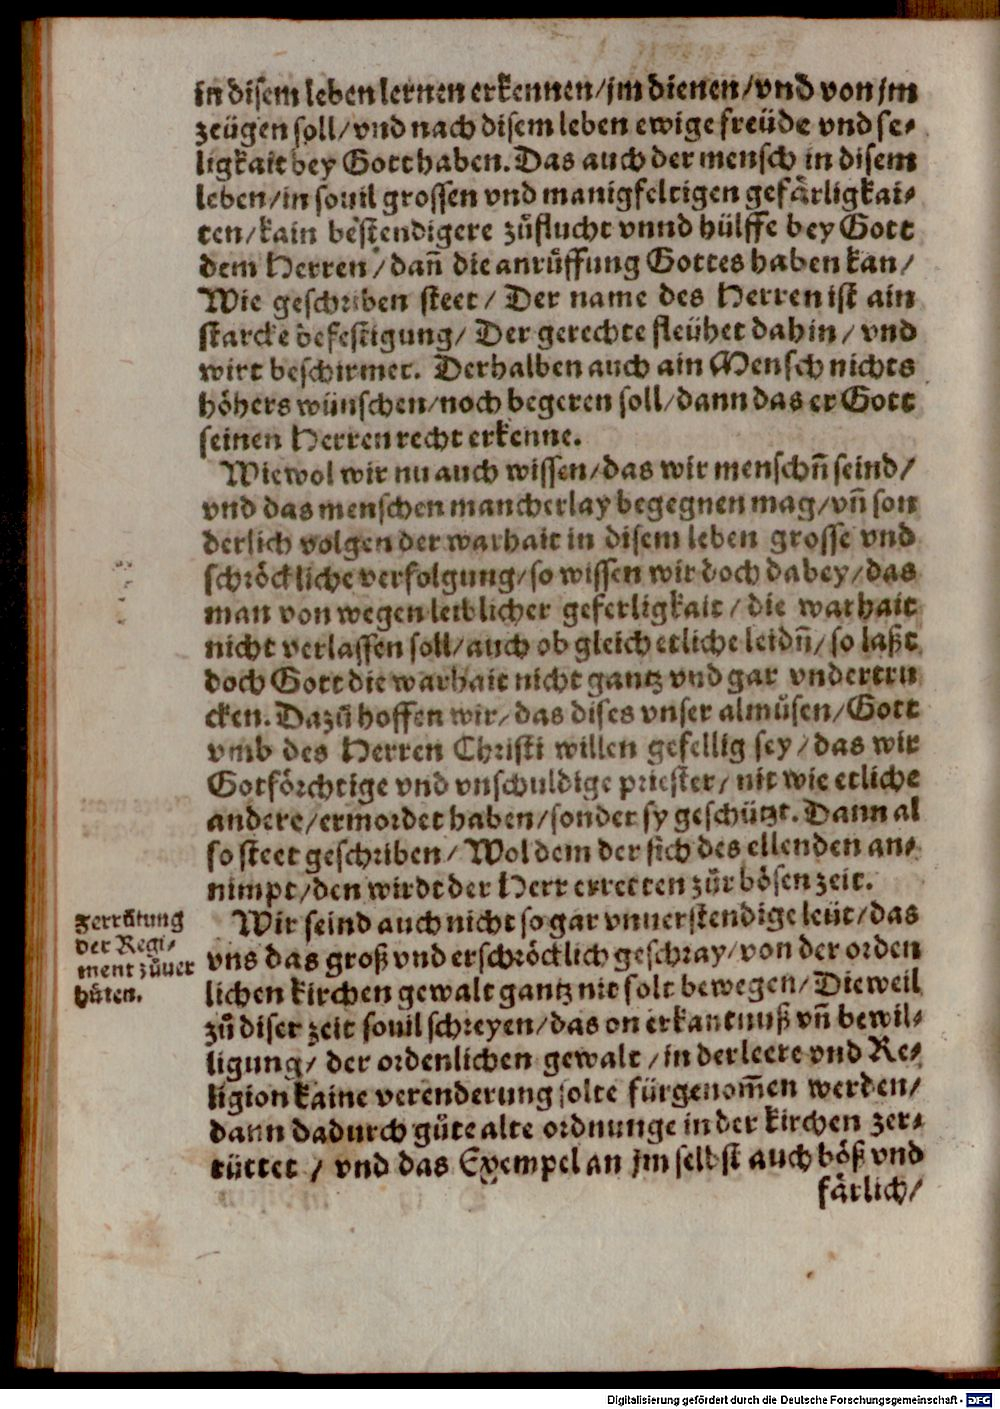 in disem leben lernen erkennen/jm dienen/vnd von jm
zeügen soll/vnd nach disem leben ewige freüde vnd se-
ligkait bey Gott haben. Das auch der mensch in disem
leben/in souil grossen vnd manigfeltigen gefärligkai-
ten/kain bestendigere zůflucht vnnd hülffe bey Gott
dem Herren/dañ die anrůffung Gottes haben kan/
Wie geschriben steet/ Der name des Herren ist ain
starcke befestigung/ Der gerechte fleühet dahin/ vnd
wirt beschirmet. Derhalben auch ain Mensch nichts
höhers wünschen/noch begeren soll/dann das er Gott
seinen Herren recht erkenne.
Wiewol wir nu auch wissen/das wir menschñ seind/
vnd das menschen mancherlay begegnen mag/vñ son
derlich volgen der warhait in disem leben grosse vnd
schröckliche verfolgung/so wissen wir doch dabey/das
man von wegen leiblicher geferligkait/die warhait
nicht verlassen soll/auch ob gleich etliche leidñ/so laßt
doch Gott die warhait nicht gantz vnd gar vndertru
cken. Dazů hoffen wir/das dises vnser almůsen/Gott
vmb des Herren Christi willen gefellig sey/das wir
Gotförchtige vnd vnschuldige priester/nit wie etliche
andere/ermordet haben/sonder sy geschützt. Dann al
so steet geschriben/ Wol dem der sich des ellenden an-
nimpt/den wirdt der Herr erretten zůr bösen zeit.
Wir seind auch nicht so gar vnuerstendige leüt/das
Zerrütung
der Regi-
ment zůuer
hüten.
vns das groß vnd erschröcklich geschray/von der orden
lichen kirchen gewalt gantz nit solt bewegen/Dieweil
zů diser zeit souil schreyen/das on erkantnuß vñ bewil-
ligung/ der ordenlichen gewalt/in der leere vnd Re-
ligion kaine verenderung solte fürgenom̃en werden/
dann dadurch gůte alte ordnunge in der kirchen zer-
rüttet/ vnd das Exempel an jm selbst auch böß vnd
färlich/
Digitalisierung gefördert durch die Deutsche Forschungsgemeinschaft - DFG